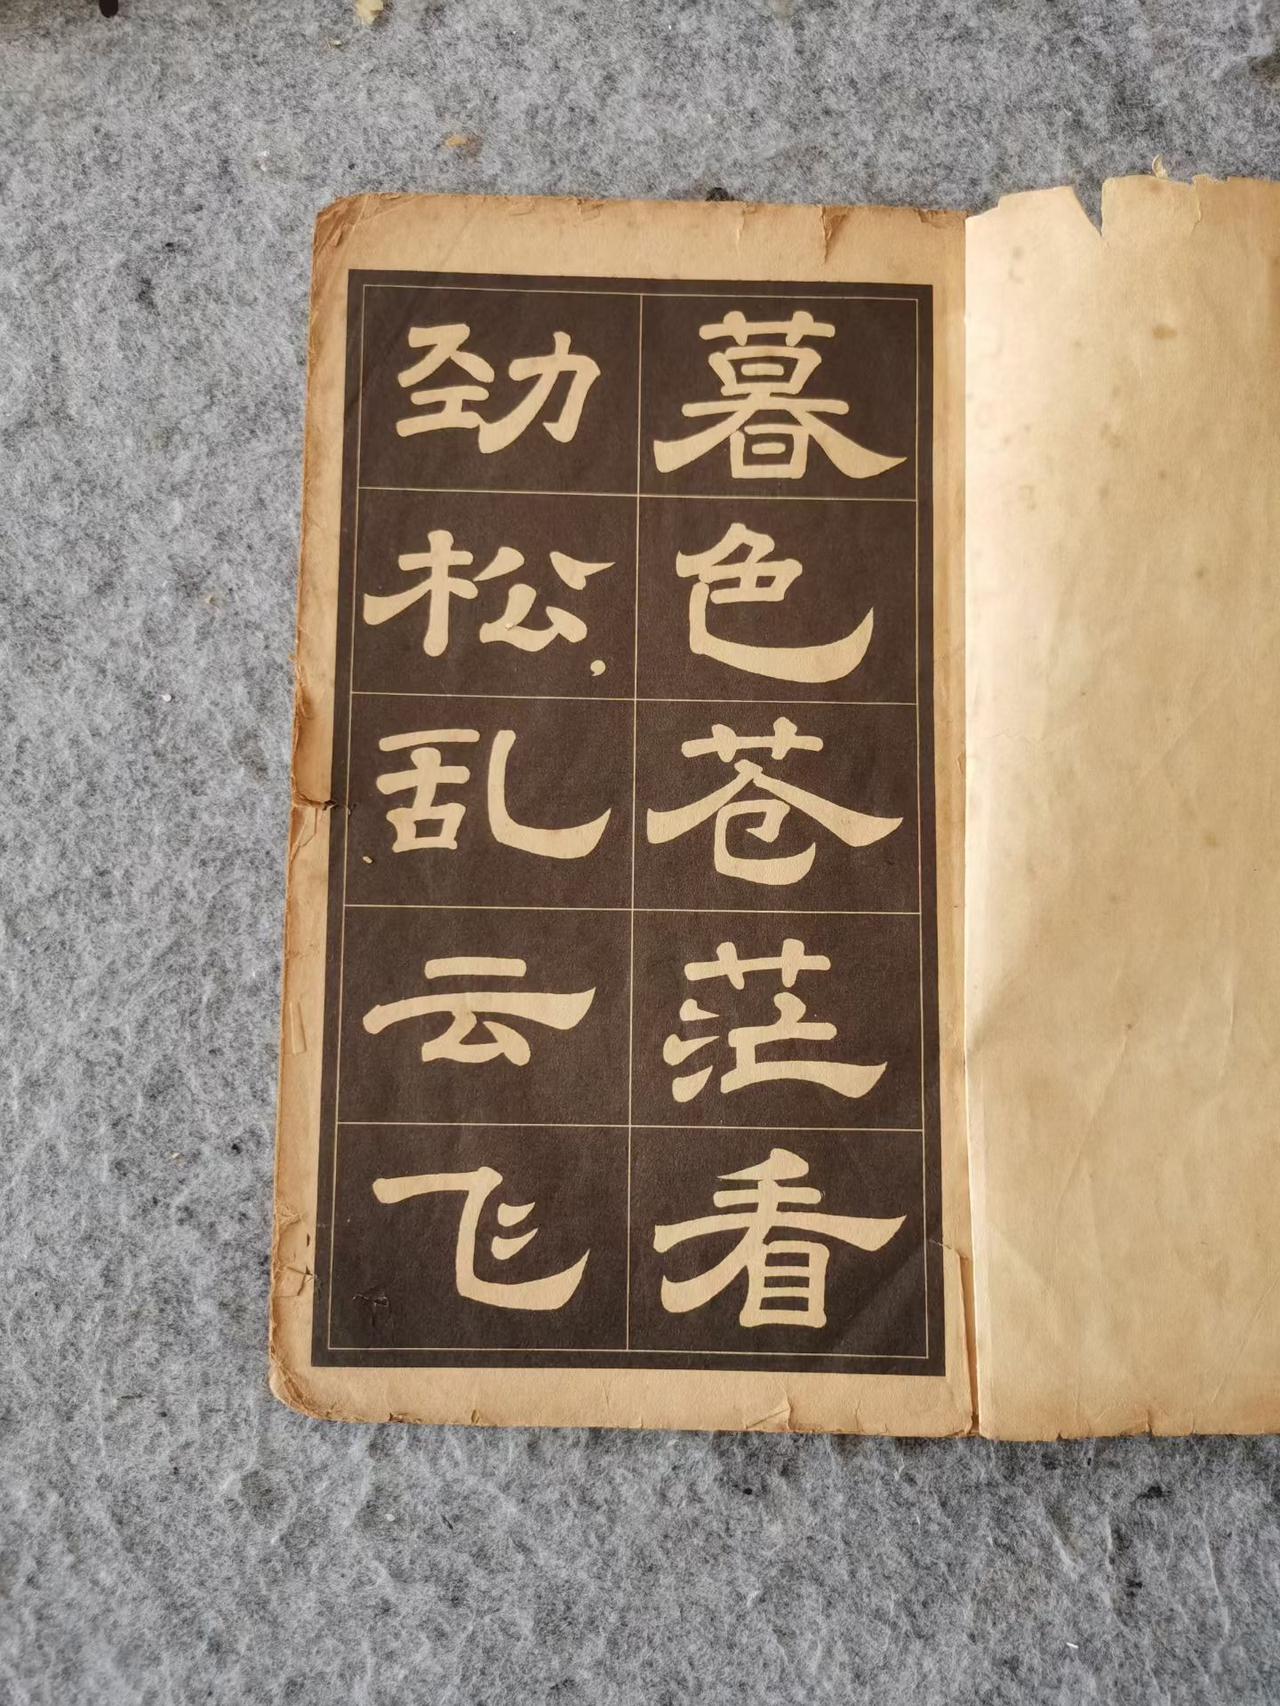 暮色苍茫看
劲松,乱云飞